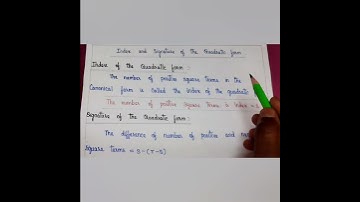 Index and Signature of the Quadratic form
Index of the Quadratic form :
The number of positive square terms in the
Canonical form is called the index of the quadratic
The number of positive square terms is index = s
Signature of the Quadratic form :
The difference of number of positive and
square terms = s-(r-s)